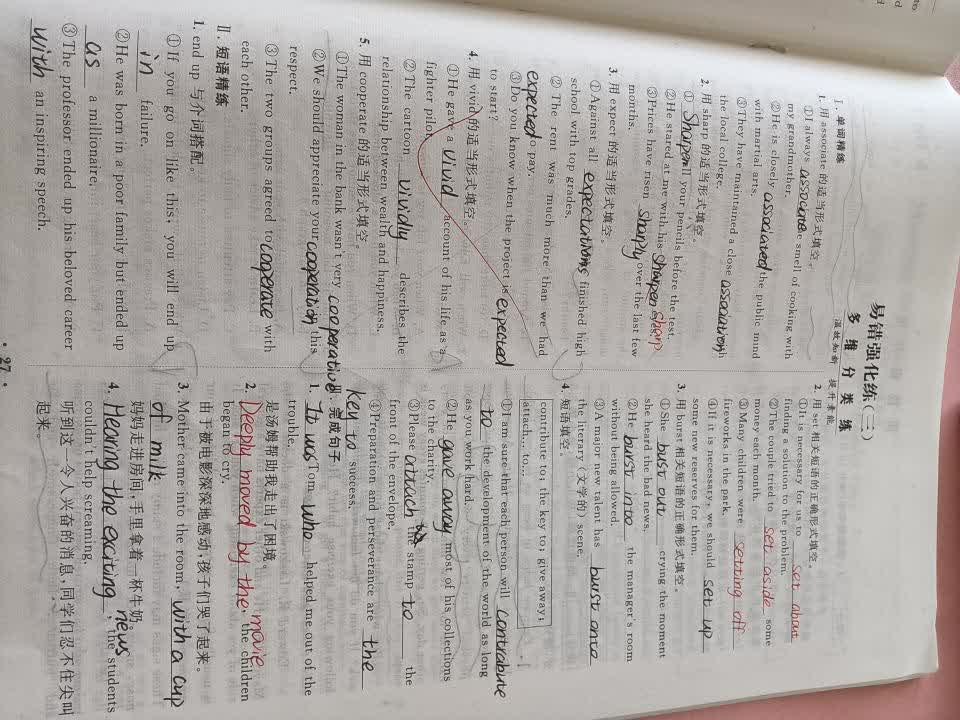 易错强化练(三)
多维分类练
温故知新 提升素能
Ⅰ.单词精练
1. 用 associate 的适当形式填空。
①I always associate smell of cooking with
my grandmother.
②He is closely associated the public mind
with martial arts.
③They have maintained a close association
the local college.
2. 用 sharp 的适当形式填空。
① Sharpen your pencils before the test.
②He stared at me with his sharpen sharp eyes.
③Prices have risen sharply over the last few
months.
3. 用 expect 的适当形式填空。
①Against all expectations finished high
school with top grades.
② The rent was much more than we had
expected to pay.
③Do you know when the project is expected
to start?
4. 用 vivid 的适当形式填空。
①He gave a vivid account of his life as a
fighter pilot.
②The cartoon vividly describes the
relationship between wealth and happiness.
5. 用 cooperate 的适当形式填空。
①The woman in the bank wasn't very cooperative.
②We should appreciate your cooperation this
respect.
③The two groups agreed to cooperate with
each other.
Ⅱ.短语精练
1. end up 与介词搭配。
①If you go on like this, you will end up
in failure.
②He was born in a poor family but ended up
as a millionaire.
③The professor ended up his beloved career
with an inspiring speech.
· 27 ·
2. 用 set 相关短语的正确形式填空。
①It is necessary for us to set about
finding a solution to the problem.
②The couple tried to set aside some
money each month.
③Many children were setting off
fireworks in the park.
④If it is necessary, we should set up
some new reserves for them.
3. 用 burst 相关短语的正确形式填空。
①She bust out crying the moment
she heard the bad news.
②He burst into the manager's room
without being allowed.
③A major new talent has burst onto
the literary (文学的) scene.
4. 短语填空。
contribute to; the key to; give away;
attach... to...
①I am sure that each person will contrabine
to the development of the world as long
as you work hard.
②He gave away most of his collections
to the charity.
③Please attach the stamp to the
front of the envelope.
④Preparation and perseverance are the
key to success.
Ⅲ.完成句子
1. It was Tom who helped me out of the
trouble.
是汤姆帮助我走出了困境。
2. Deeply moved by the movie, the children
began to cry.
由于被电影深深地感动,孩子们哭了起来。
3. Mother came into the room, with a cup
of milk
妈妈走进房间,手里拿着一杯牛奶。
4. Hearing the exciting news, the students
couldn't help screaming.
听到这一令人兴奋的消息,同学们忍不住尖叫
起来。